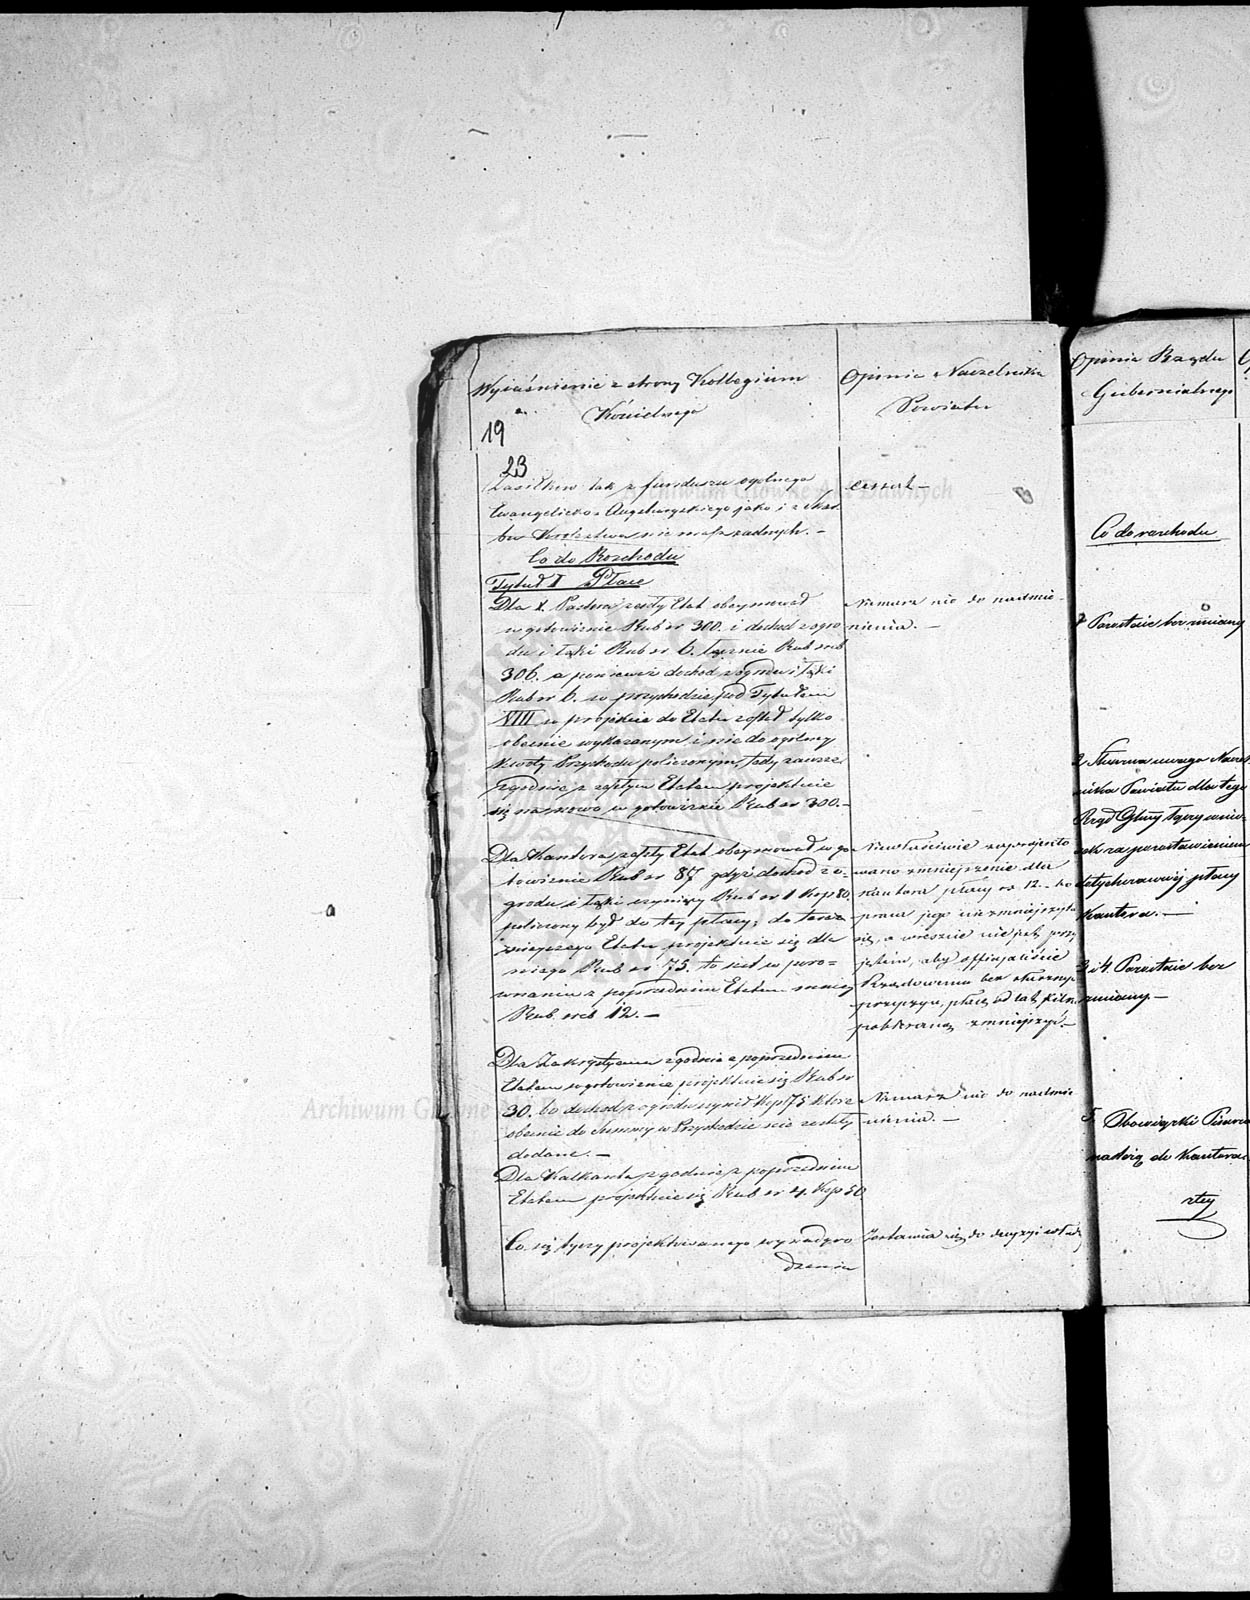 Wyjaśnienie z strony Kollegium
Kościelnego
19
23
Zasiłków tak z funduszu ogólnego
Ewangelicko-Augsburgskiego jako i z Skar
bu Królestwa nie ma żadnych. –
Co do Rozchodu
Tytuł I Płace
Dla X. Pastora zeszły Etat obejmował
w gotowiznie Rub sr 300. i dochód z ogro
du i łąki Rub sr 6. łącznie Rub sreb
306. a ponieważ dochód z ogrodu i łąki
Rub sr 6. w przychodzie pod Tytułem
VIII w projekcie do Etatu został tylko
obecnie wykazanym i nie do ogólnej
kwoty Przychodu policzonym, tedy zawsze
zgodnie z zeszłym Etatem projektuje
się na nowo w gotowiznie Rub sr 300. –
Dla Kantora zeszły Etat obejmował w go
towiznie Rub sr 87 gdyż dochód z o-
grodu i łąki czyniący Rub sr 1 Kop 80
policzony był do tej płacy; do teraz
niejszego Etatu projektuje się dla
niego Rub sr 75. to jest w poró=
wnaniu z poprzednim Etatem mniej
Rub. sreb 12. –
Dla Zakrystyana zgodnie z poprzednim
Etatem w gotowiznie projektuje się Rub sr
30. bo dochód z ogrodu czynił Kop 75 które
obecnie do Summy w Przychodzie nie zostały
dodane. –
Dla Kalkanta zgodnie z poprzednim
Etatem projektuje się Rub sr 4. Kop 50
Co się tyczy projektowanego wynadgro
dzenia
Opinia Naczelnika
Powiatu
cessat –
Niemasz nic do nadmie-
nienia. –
Niewłaściwie zaprojekto
wano zmniejszenie dla
Kantora płacy rs 12. – bo
praca jego nie zmniejszyła
się, a wreszcie nie jest przy
jętem, aby officjaliście
Rządowemu bez słusznej
przyczyny, płacę od lat kilku
pobieraną zmniejszyć. –
Niemasz nic do nadmie
nienia. –
Zostawia się do decyzyi władz
Opinia Rządu
Gubernialnego
Co do rozchodu
1 Pozostaje bez zmiany
2 Słuszna uwaga Naczel
nika Powiatu dla tego
Rząd Glny łączy wnio-
sek za pozostawieniem
dotychczasowej płacy
Kantora. –
3 i 4. Pozostaje bez
zmiany –
5. Obowiązki Pisarza
należą do Kantora
Archiwum Główne Akt Dawnych